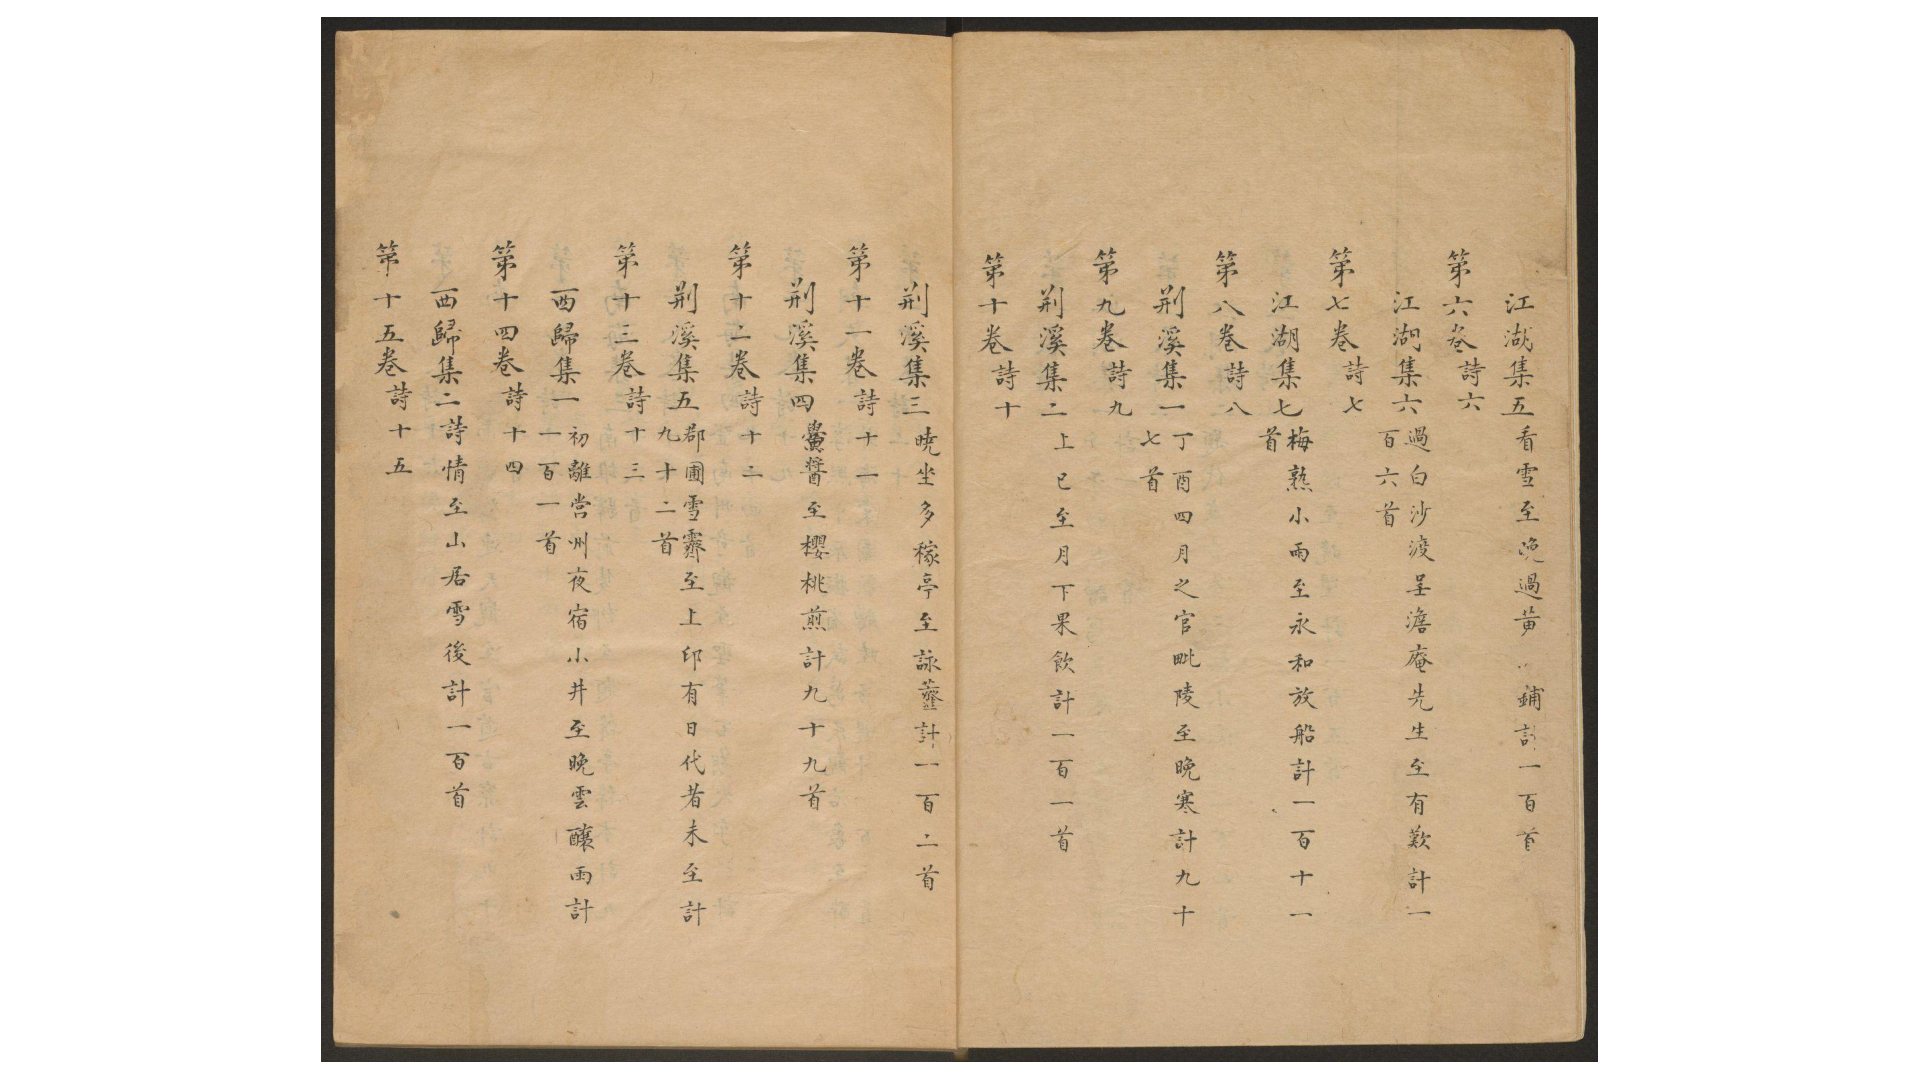 江湖集五看雪至晚過黄鋪計一百首
第六卷詩六
江湖集六過白沙渡呈澹庵先生至有歎計一
百六首
第七卷詩七
江湖集七梅熟小雨至永和放船計一百十一
首
第八卷詩八
荆溪集一丁酉四月之官毗陵至晚寒計九十
七首
第九卷詩九
荆溪集二上巳至月下果飲計一百一首
第十卷詩十
荆溪集三曉坐多稼亭至詠虀計一百二首
第十一卷詩十一
荆溪集四鱟醬至櫻桃煎計九十九首
第十二卷詩十二
荆溪集五郡圃雪霽至上印有日代者未至計
九十二首
第十三卷詩十三
西歸集一初離常州夜宿小井至晚雲釀雨計
一百一首
第十四卷詩十四
西歸集二詩情至山居雪後計一百首
第十五卷詩十五